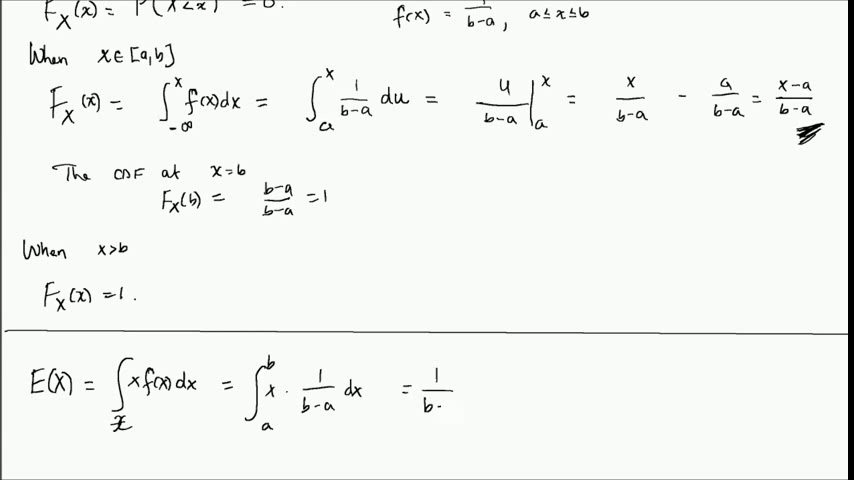 F_X(x) = P(X<x) = 0.
f(x) = 1/(b-a), a ≤ x ≤ b
When x ∈ [a,b]
F_X(x) = ∫_{-∞}^{x} f(x)dx = ∫_a^x 1/(b-a) du = u/(b-a) |_a^x = x/(b-a) - a/(b-a) = (x-a)/(b-a)
The CDF at x=b
F_X(b) = (b-a)/(b-a) = 1
When x>b
F_X(x) = 1.
E(X) = ∫_𝒳 x f(x) dx = ∫_a^b x · 1/(b-a) dx = 1/(b-